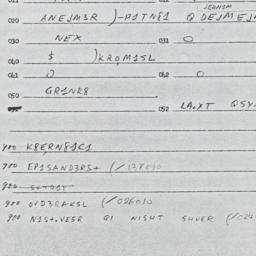 JERNIM
020 ANEJM3R )-P1TN81 Q DEJMEJ
030 NEX 031 O
040 $ )KRQM1SL
041 O 042 O
050 GR1NK8
052 LA.XT QSY
900 K8ERN81C1
900 EP1SAND3RS+ (/138010
900
900 OVD3RAKSL (/026010
900 N1S+.VESR Q1 NISHT SHVER (/024